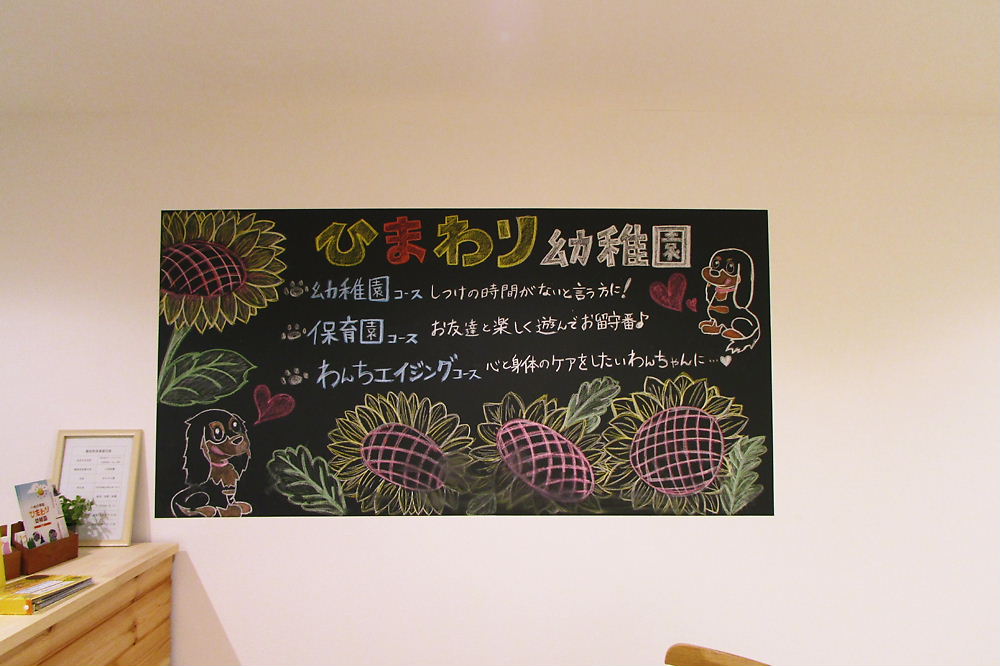 ひまわり幼稚園
幼稚園コース しつけの時間がないと言う方に!
保育園コース お友達と楽しく遊んでお留守番♪
わんちエイジングコース 心と身体のケアをしたいわんちゃんに…♥
ひまわり
幼稚園